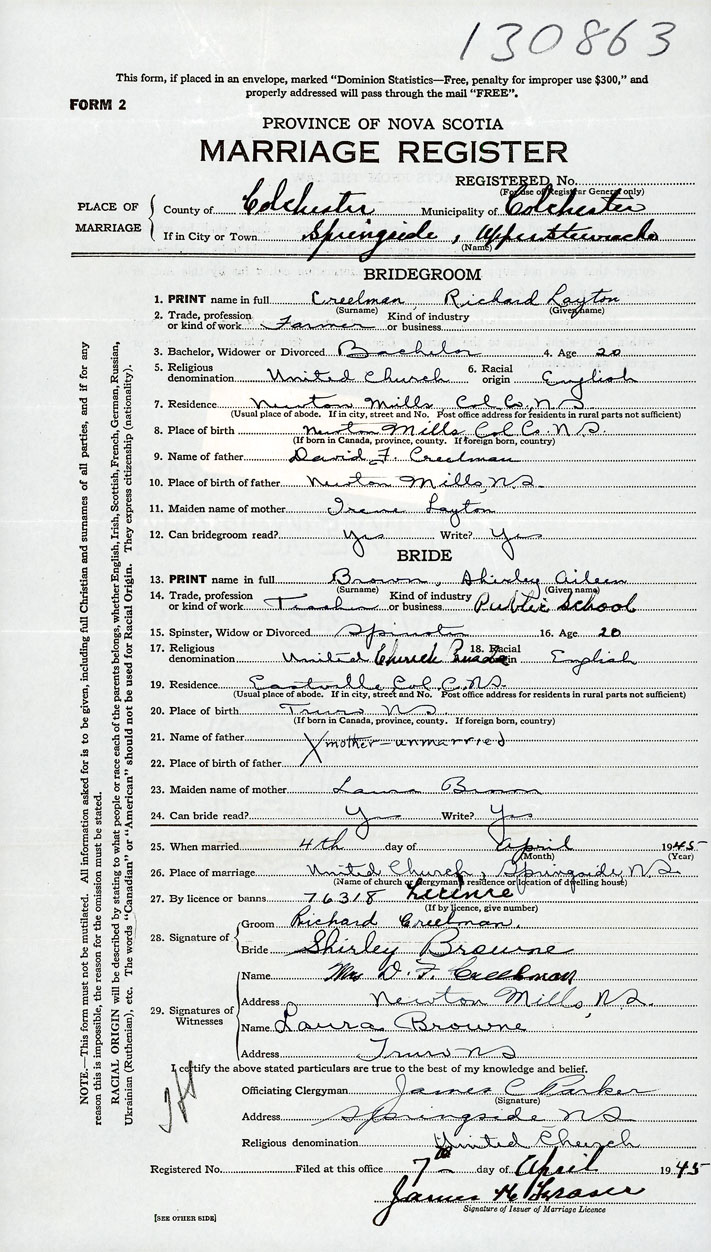 130863
This form, if placed in an envelope, marked "Dominion Statistics—Free, penalty for improper use $300," and
properly addressed will pass through the mail "FREE".
FORM 2
PROVINCE OF NOVA SCOTIA
MARRIAGE REGISTER
REGISTERED, No.
(For use of Registrar General only)
PLACE OF MARRIAGE
County of Colchester Municipality of Colchester
If in City or Town Springside, Upper Stewiacke
(Name)
BRIDEGROOM
1. PRINT name in full Creelman, Richard Layton
(Surname) (Given name)
2. Trade, profession or kind of work Farmer Kind of industry or business
3. Bachelor, Widower or Divorced Bachelor 4. Age 20
5. Religious denomination United Church 6. Racial origin English
7. Residence Newton Mills, Col. Co., N.S.
(Usual place of abode. If in city, street and No. Post office address for residents in rural parts not sufficient)
8. Place of birth Newton Mills Col. Co. N.S.
(If born in Canada, province, county. If foreign born, country)
9. Name of father David F. Creelman
10. Place of birth of father Newton Mills, N.S.
11. Maiden name of mother Irene Layton
12. Can bridegroom read? Yes Write? Yes
BRIDE
13. PRINT name in full Brown, Shirley Aileen
(Surname) (Given name)
14. Trade, profession or kind of work Teacher Kind of industry or business Public School
15. Spinster, Widow or Divorced Spinster 16. Age 20
17. Religious denomination United Church Canada 18. Racial origin English
19. Residence Eastville Col. C. N.S.
(Usual place of abode. If in city, street and No. Post office address for residents in rural parts not sufficient)
20. Place of birth Truro N S
(If born in Canada, province, county. If foreign born, country)
21. Name of father X mother - unmarried
22. Place of birth of father
23. Maiden name of mother Laura Brown
24. Can bride read? Yes Write? Yes
25. When married 4th day of April 1945
(Month) (Year)
26. Place of marriage United Church, Springside, N.S.
(Name of church or clergyman's residence or location of dwelling house)
27. By licence or banns 76318 Licence
(If by licence, give number)
28. Signature of
Groom Richard Creelman.
Bride Shirley Browne
29. Signatures of Witnesses
Name Mrs D. F. Creelman
Address Newton Mills, N.S.
Name Laura Browne
Address Truro N S
I certify the above stated particulars are true to the best of my knowledge and belief.
Officiating Clergyman James C Parker
(Signature)
Address Springside N S
Religious denomination United Church
Registered No. Filed at this office 7th day of April 1945
James H Fraser
Signature of Issuer of Marriage Licence
[SEE OTHER SIDE]
NOTE.—This form must not be mutilated. All information asked for is to be given, including full Christian and surnames of all parties, and if for any
reason this is impossible, the reason for the omission must be stated.
RACIAL ORIGIN will be described by stating to what people or race each of the parents belongs, whether English, Irish, Scottish, French, German, Russian,
Ukrainian (Ruthenian), etc. The words "Canadian" or "American" should not be used for Racial Origin. They express citizenship (nationality).